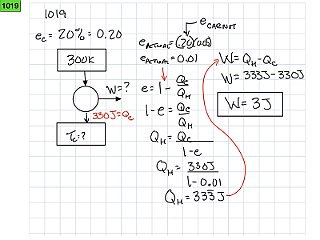 1019
1019
e_c = 20% = 0.20
300K
W=?
330J=Q_c
T_c=?
e_CARNOT
e_ACTUAL = (.20)
e_ACTUAL = 0.01
e = 1 - Q_c/Q_H
1-e = Q_c/Q_H
Q_H = Q_c/1-e
Q_H = 330J/1-0.01
Q_H = 333J
W = Q_H - Q_c
W = 333J - 330J
W = 3J